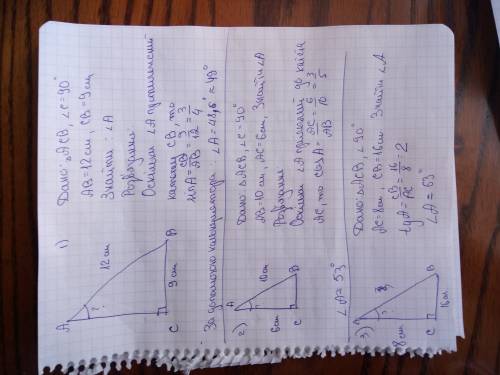 1)
A
12 см
?
9 см
C
B
Дано: △ACB, ∠C=90°
AB=12 см, CB=9 см
Знайти: ∠A
Розв'язання:
Оскільки ∠A протилежний
катету CB, то
sin A = CB/AB = 9/12 = 3/4
За допомогою калькулятора: ∠A = 48,6° ≈ 49°
2)
A
?
10 см
6 см
C
B
Дано: △ACB, ∠C=90°
AB=10 см, AC=6 см, Знайти ∠A
Розв'язання
Оскільки ∠A прилеглий до катета
AC, то cos A = AC/AB = 6/10 = 3/5
∠A = 53°
3)
A
?
8 см
C
B
16 см
Дано: △ACB, ∠90°
AC=8 см, CB=16 см Знайти ∠A
tg A = CB/AC = 16/8 = 2
∠A = 63°